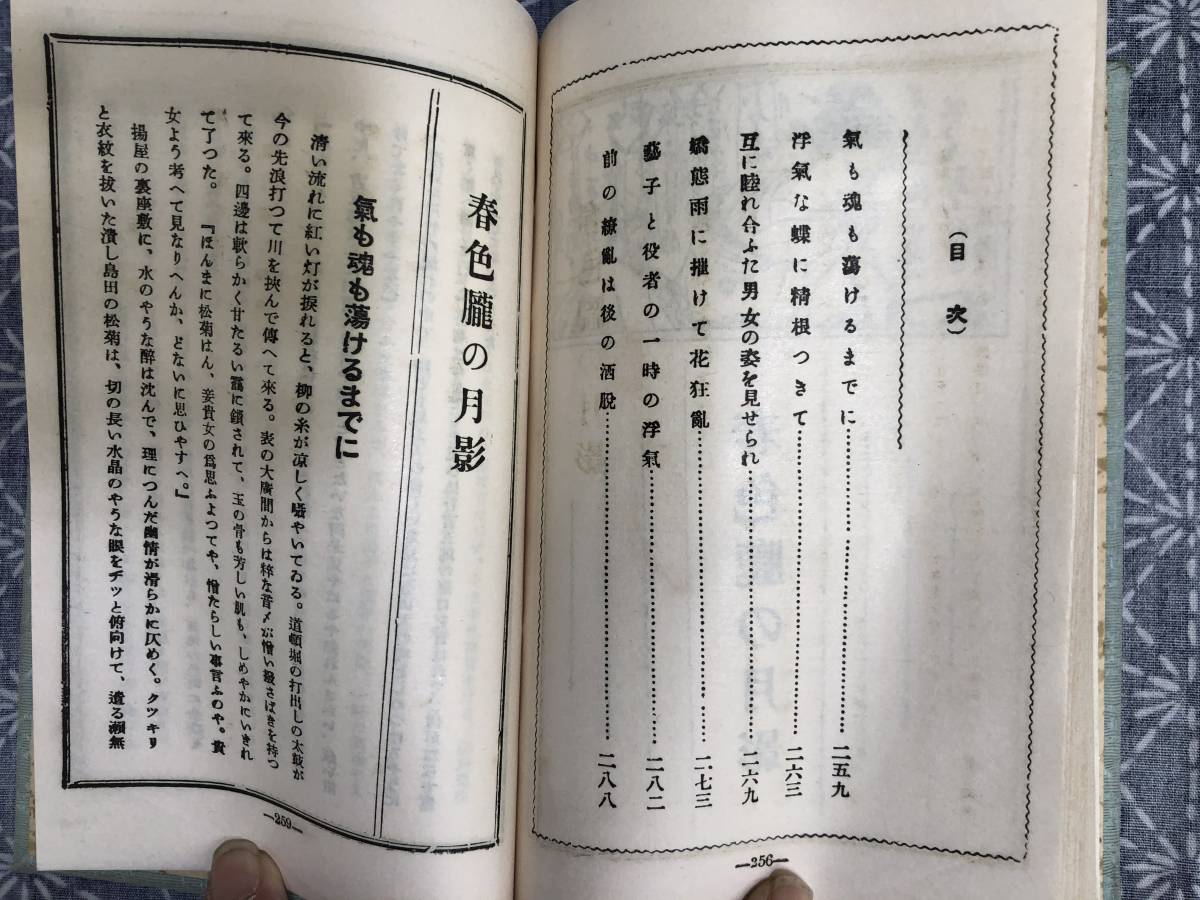 (目次)
氣も魂も蕩けるまでに……………二五九
浮氣な蝶に精根つきて……………二六三
互に睦れ合ふた男女の姿を見せられ……………二六九
嬌態雨に摧けて花狂亂……………二七三
藝子と役者の一時の浮氣……………二八二
前の繚亂は後の洒脱……………二八八
—256—
春色朧の月影
氣も魂も蕩けるまでに
淸い流れに紅い灯が捩れると、柳の糸が凉しく囁やいてゐる。道頓堀の打出しの太鼓が
今の先浪打つて川を挾んで傳へて來る。表の大廣間からは粹な音〆が憎い撥さばきを持つ
て來る。四邊は軟らかく甘たるい靄に鎖されて、玉の骨も芳しい肌も、しめやかにいきれ
て了つた。『ほんまに松菊はん、妾貴女の爲思ふよつてや、憎たらしい事言ふのや。貴
女よう考へて見なりへんか、どないに思ひやすへ。』
揚屋の裏座敷に、水のやうな醉は沈んで、理につんだ幽情が滑らかに仄めく。クツキリ
と衣紋を拔いた潰し島田の松菊は、切の長い水晶のやうな眼をヂッと俯向けて、遣る瀬無
—259—